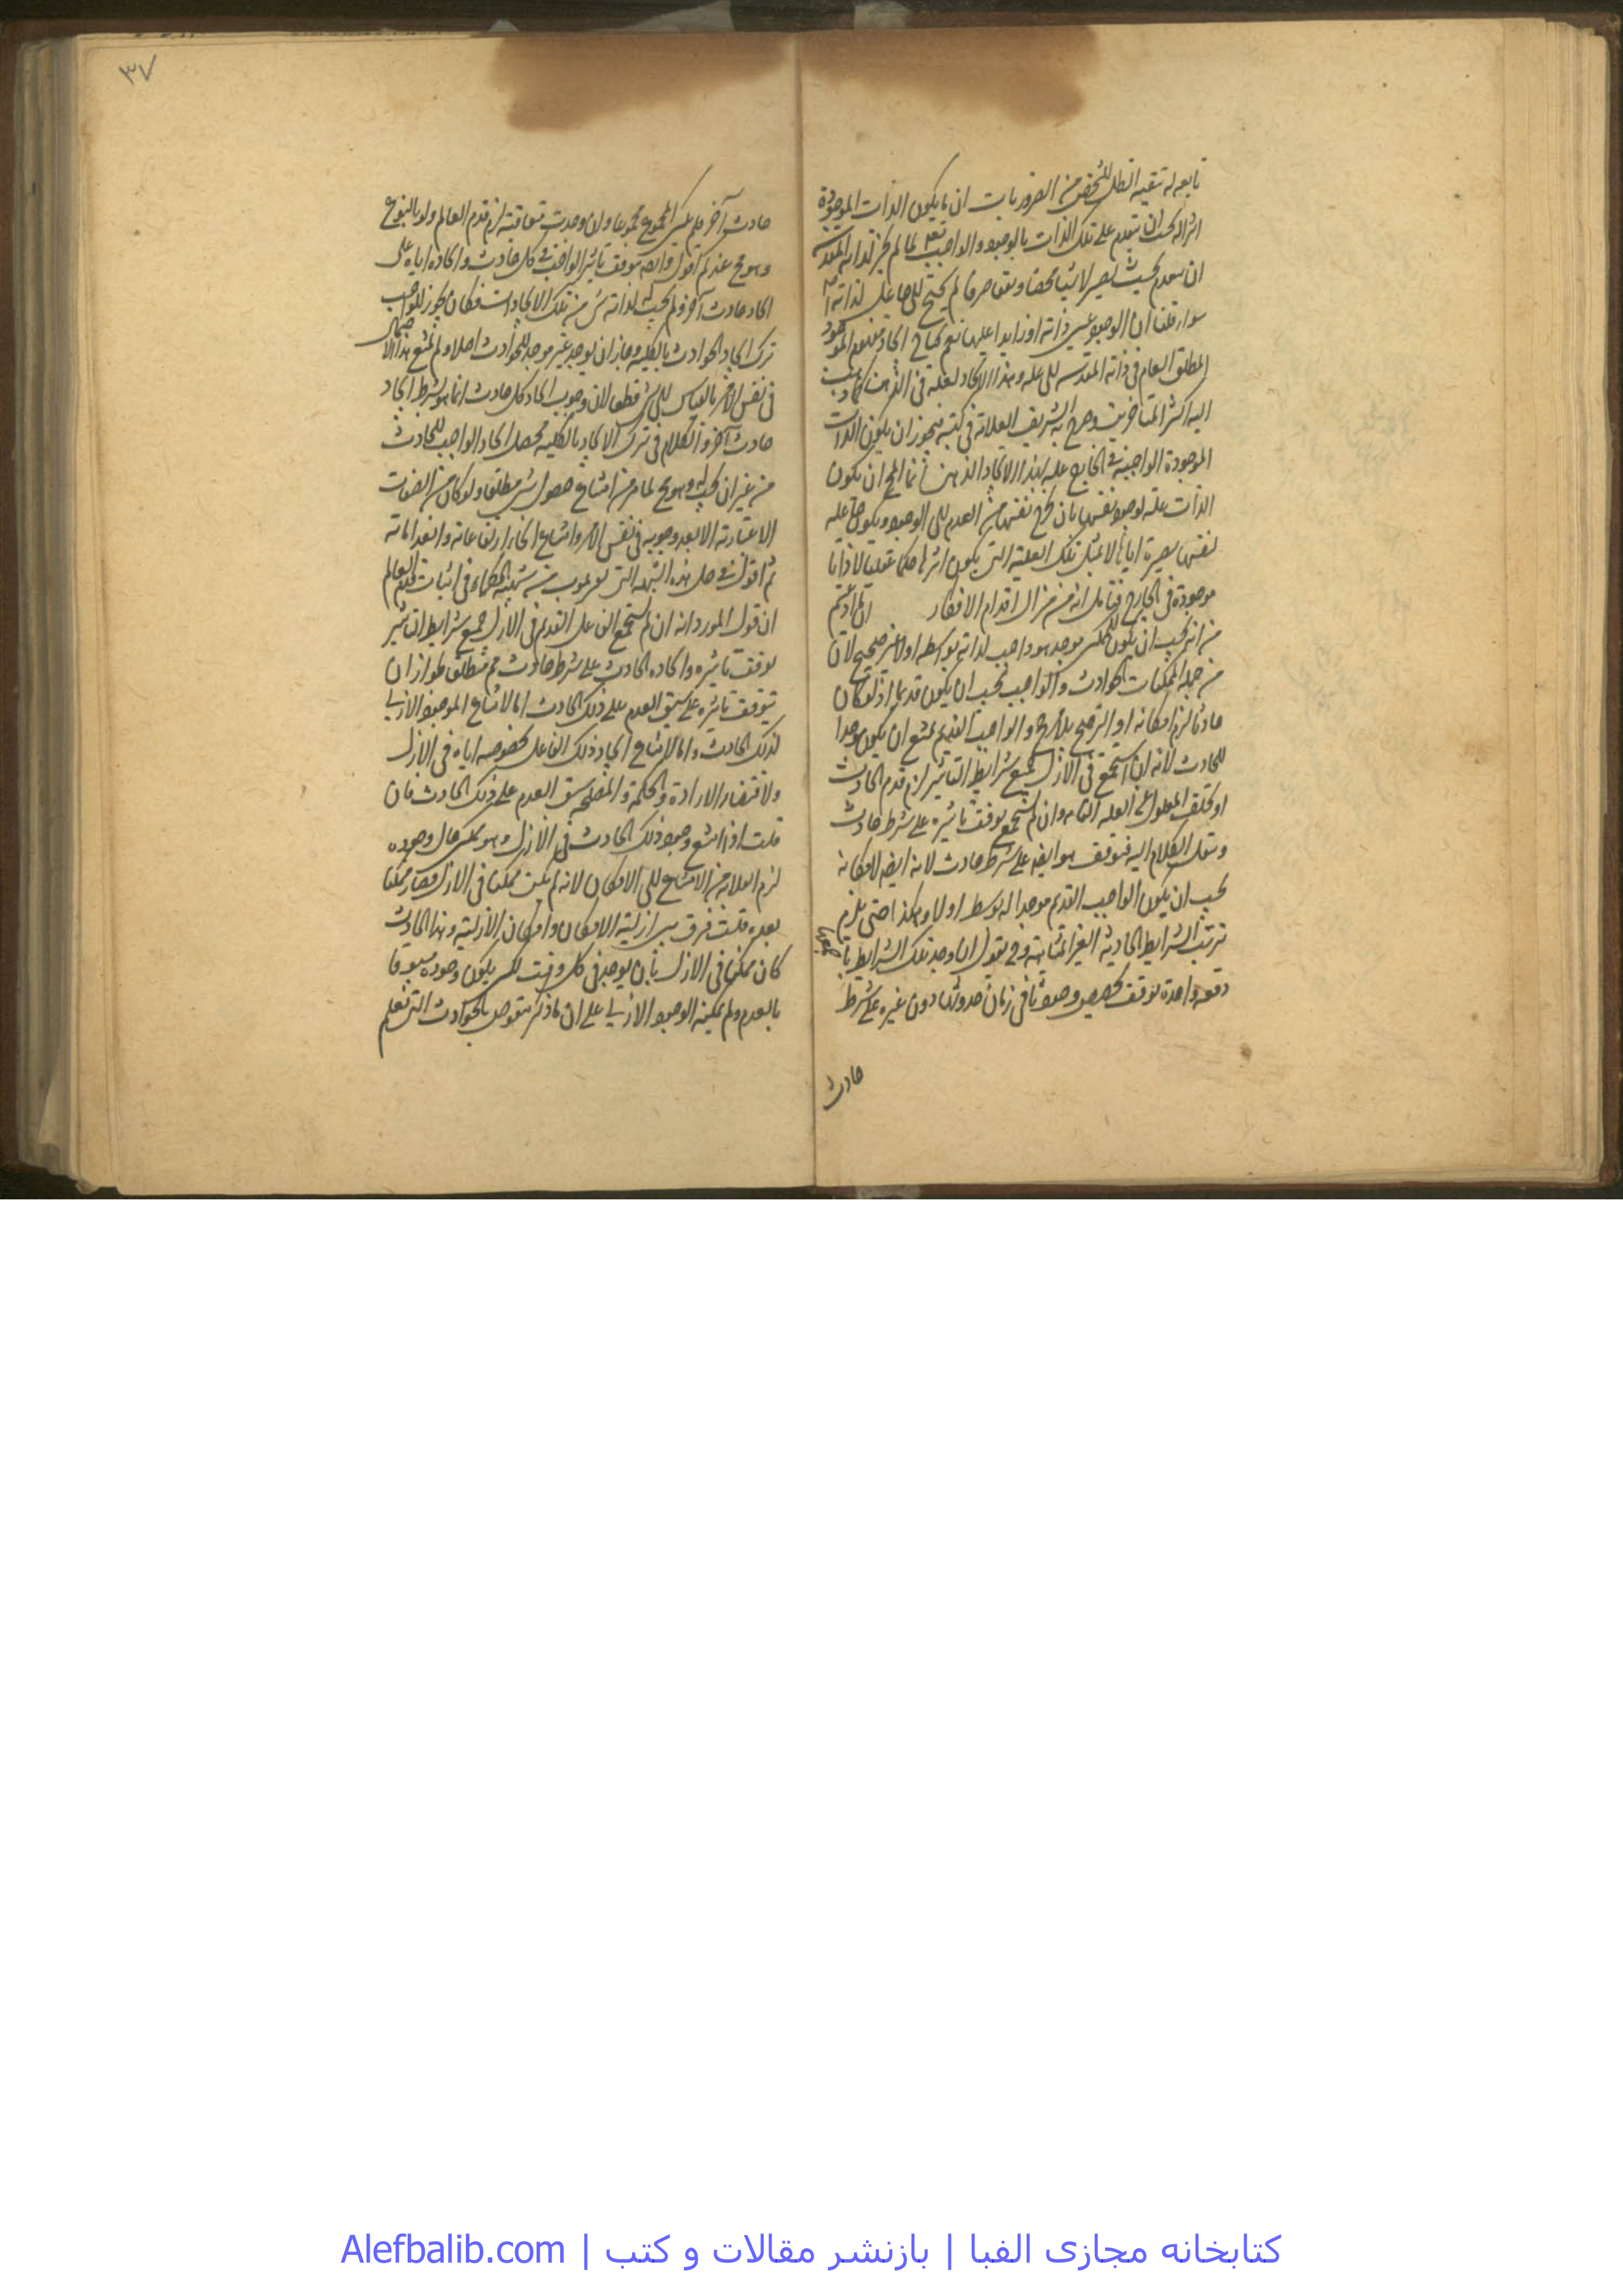 تابعه له تبعية الظل للشخص من الضروريات ان ما يكون الذات الموجودة
اثرا له يجب ان يتقدم على تلك الذات بالوجود والواجب تعالى لما لم يجز لذاته المقدسة
ان ينعدم بحيث يصير لا شيئا محضا ونفيا صرفا لم يحتج الى جاعل لذاته
سواء قلنا ان الوجود عين ذاته او زايدا عليها نعم يحتاج اتحاد مفهوم الموجود
المطلق العام في ذاته المقدسة الى علة وهذا الاتحاد لعلة في الذهن كما ذهب
اليه اكثر المتأخرين وصرح به الشريف العلامة في كتبه فيجوز ان يكون الذات
الموجودة الواجبية في الخارج علة لهذا الاتحاد الذهني انما المحال ان يكون
الذات علة لوجود نفسها بان يخرج نفسها من العدم الى الوجود ويكون علة
لنفسها بصيرة اياها لا بمثل تلك العلية التي يكون اثرها حكما عقليا لا ذاتا
موجودة في الخارج فتأمل انه من مزال اقدام الافكار
من انه يجب ان يكون للممكن موجد هو واجب لذاته بواسطة اولا غير صحيح لان
من جملة الممكنات الحوادث والواجب يجب ان يكون قديما اذ لو كان
حادثا لزم امكانه او الترجيح بلا مرجح والواجب القديم يمتنع ان يكون موجدا
للحادث لانه ان استجمع في الازل جميع شرايط التأثير لزم قدم الحادث
او تخلف المعلول عن العلة التامة وان لم يستجمع توقف تأثيره على شرط حادث
وينقل الكلام اليه فيتوقف هو ايضا على شرط حادث لانه ايضا لامكانه
يجب ان يكون الواجب القديم موجدا له بوسط اولا وهكذا حتى يلزم
ترتب الشرايط الحادثة الغير المتناهية وح نقول ان وجد تلك الشرايط
دفعة واحدة توقف تخصيص وجودها في زمان حدوثها دون غيره على شرط
حادث
٣٧
حادث آخر فلم يكن المجموع مجموعا وان وجدت متعاقبة لزم قدم العالم ولو بالنوع
وهو مح عندكم اقول وايضا توقف تأثير الواجب في كل حادث وايجاده اياه على
ايجاد حادث آخر ولم يجب لذاته شئ من تلك الايجادات فكان يجوز للواجب
ترك ايجاد الحوادث بالكلية وجاز ان يوجد غير موجد للحوادث اصلا ولم يمتنع هذا الاحتمال
في نفس الامر بالقياس الى شئ قطعا لان وجوب ايجاد كل حادث انما هو بشرط ايجاد
حادث آخر والكلام في ترك الايجاد بالكلية فحصل ايجاد الواجب للحادث
من غير ان يجب له وهو مح لما مر من امتناع حصول شئ مطلقا ولو كان من الصفات
الاعتبارية الا بعد وجوبه في نفس الامر وامتناع انحاء ارتفاعاته وانعداماته
ثم اقول في حل هذه الشبهة التي من شبه الحكماء في اثبات قدم العالم
ان قول المورد انه ان لم يستجمع الفاعل القديم في الازل جميع شرايط التأثير
توقف تأثيره وايجاده الحادث على شرط حادث مم مطلقا لجواز ان
يتوقف تأثيره على سبق العدم على ذلك الحادث اما لامتناع الوجود الازلي
لذلك الحادث واما لامتناع ايجاد ذلك الفاعل بخصوصه اياه في الازل
ولاقتضاء الارادة والحكمة والمصلحة سبق العدم على ذلك الحادث فان
قلت اذا امتنع وجود ذلك الحادث في الازل وهو ممكن حال وجوده
لزم انقلابه من الامتناع الى الامكان لانه لم يكن ممكنا في الازل فصار ممكنا
بعده قلت فرق بين ازلية الامكان وامكان الازلية وهذا الحادث
كان ممكنا في الازل بان يوجد في كل وقت لكن يكون وجوده مسبوقا
بالعدم ولم يمكنه الوجود الازلي على ان ما ذكر منقوض بالحوادث التي نعلم
کتابخانه مجازی الفبا | بازنشر مقالات و کتب | Alefbalib.com